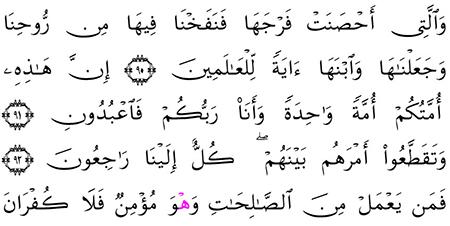 وَالَّتِىٓ أَحْصَنَتْ فَرْجَهَا فَنَفَخْنَا فِيهَا مِن رُّوحِنَا
وَجَعَلْنَٰهَا وَٱبْنَهَا ءَايَةً لِّلْعَٰلَمِينَ ۝٩٠ إِنَّ هَٰذِهِۦ
أُمَّتُكُمْ أُمَّةً وَٰحِدَةً وَأَنَا۠ رَبُّكُمْ فَٱعْبُدُونِ ۝٩١
وَتَقَطَّعُوٓا۟ أَمْرَهُم بَيْنَهُمْ ۖ كُلٌّ إِلَيْنَا رَٰجِعُونَ ۝٩٢
فَمَن يَعْمَلْ مِنَ ٱلصَّٰلِحَٰتِ وَهْوَ مُؤْمِنٌ فَلَا كُفْرَانَ